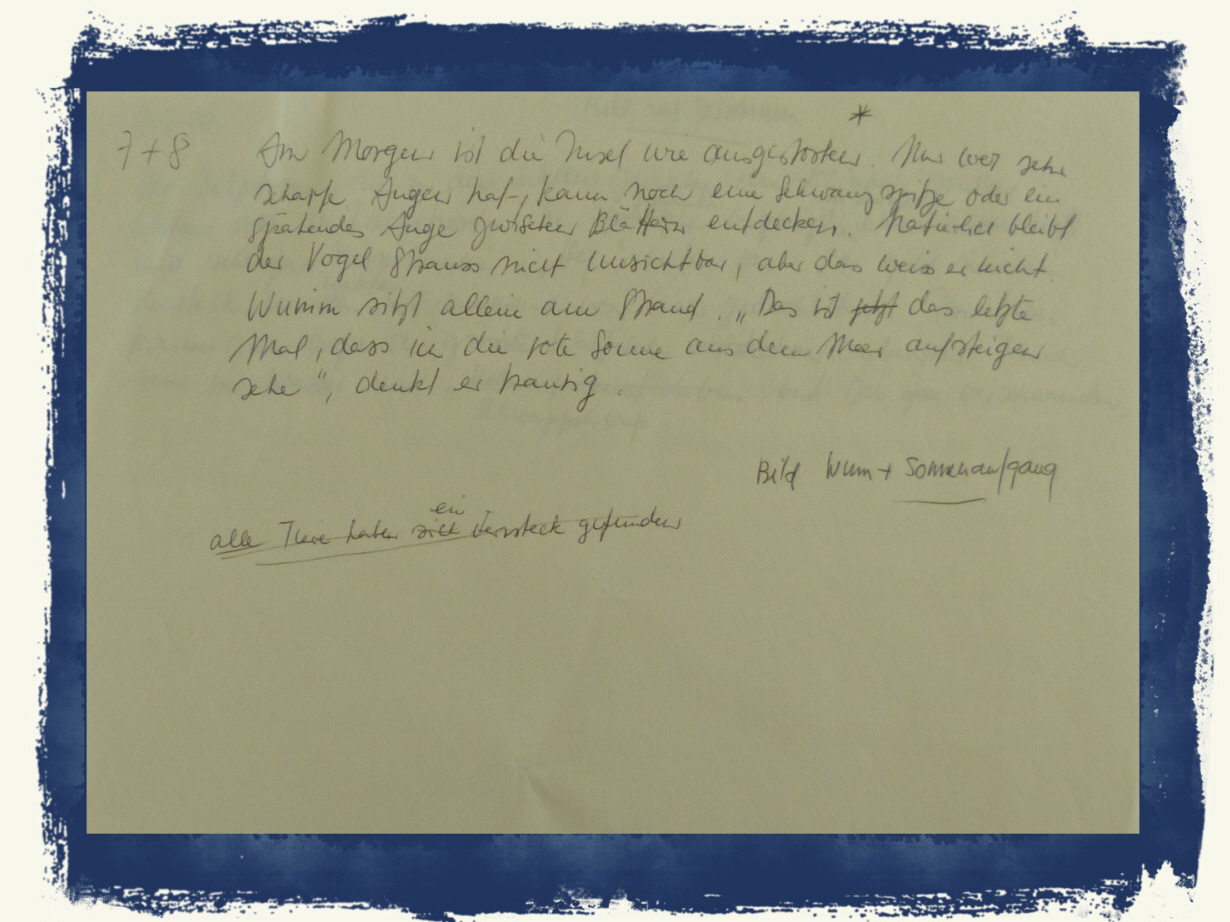 *
7+8 Am Morgen ist die Insel wie ausgestorben. Nur wer sehr
scharfe Augen hat, kann noch eine Schwanzspitze oder ein
spähendes Auge zwischen Blättern entdecken. Natürlich bleibt
der Vogel Strauss nicht unsichtbar, aber das weiss er nicht.
Wumm sitzt allein am Strand. „Das ist jetzt das letzte
Mal, dass ich die rote Sonne aus dem Meer aufsteigen
sehe", denkt er traurig.
Bild Wum + Sonnenaufgang
ein
alle Tiere haben sich Versteck gefunden